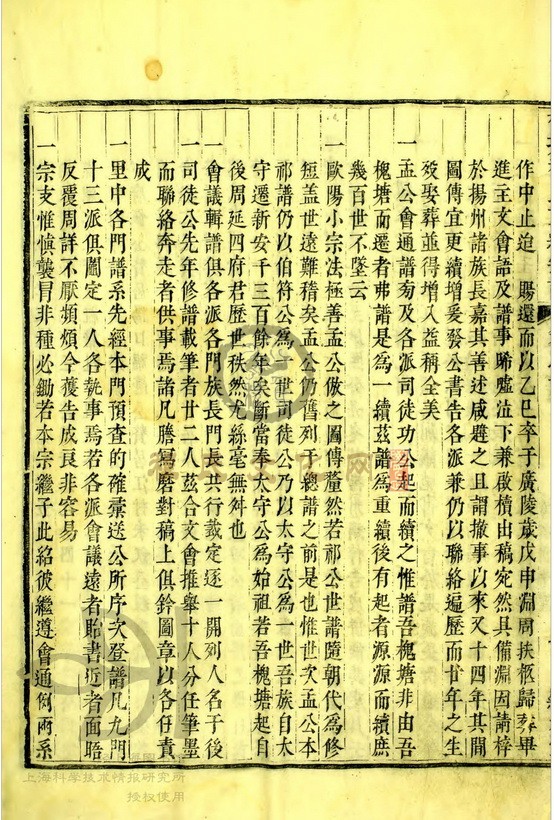 作中止迨　賜還而以乙巳卒于廣陵歲戊申淵周扶柩歸葬畢
進主文會語及譜事唏噓泣下兼啟櫝出稿宛然具備淵因請梓
於揚州諸族長嘉其善述咸韙之且謂撤事以來又十四年其間
圖傳宜更續增爰發公書告各派兼仍以聯絡遍歷而廿年之生
歿娶葬並得增入益稱全美
一孟公會通譜刱及各派司徒功公起而續之惟譜吾槐塘非由吾
槐塘而遷者弗譜是為一續茲譜為重續後有起者源源而續庶
幾百世不墜云
一歐陽小宗法極善孟公倣之圖傳釐然若祁公世譜隨朝代為修
短蓋世遠難稽矣孟公仍舊列于總譜之前是也惟世次孟公本
祁譜仍以伯符公為一世司徒公乃以太守公為一世吾族自太
守遷新安千三百餘年矣斷當奉太守公為始祖若吾槐塘起自
後周延四府君歷世秩然尤絲毫無舛也
一會議輯譜俱各派各門族長門長共行裁定逐一開列人名于後
一司徒公先年修譜載筆者廿二人茲合文會推舉十人分任筆墨
而聯絡奔走者供事焉諸凡謄冩磨對稿上俱鈐圖章以各任責
成
一里中各門譜系先經本門預查的確彙送公所序次登譜凡九門
十三派俱鬮定一人各執事焉若各派會議遠者貽書近者面晤
反覆周詳不厭煩煩今獲告成良非容易
一宗支惟慎襲冒非種必鋤若本宗繼子此紹彼繼遵會通例兩系
上海科学技术情报研究所
授权使用